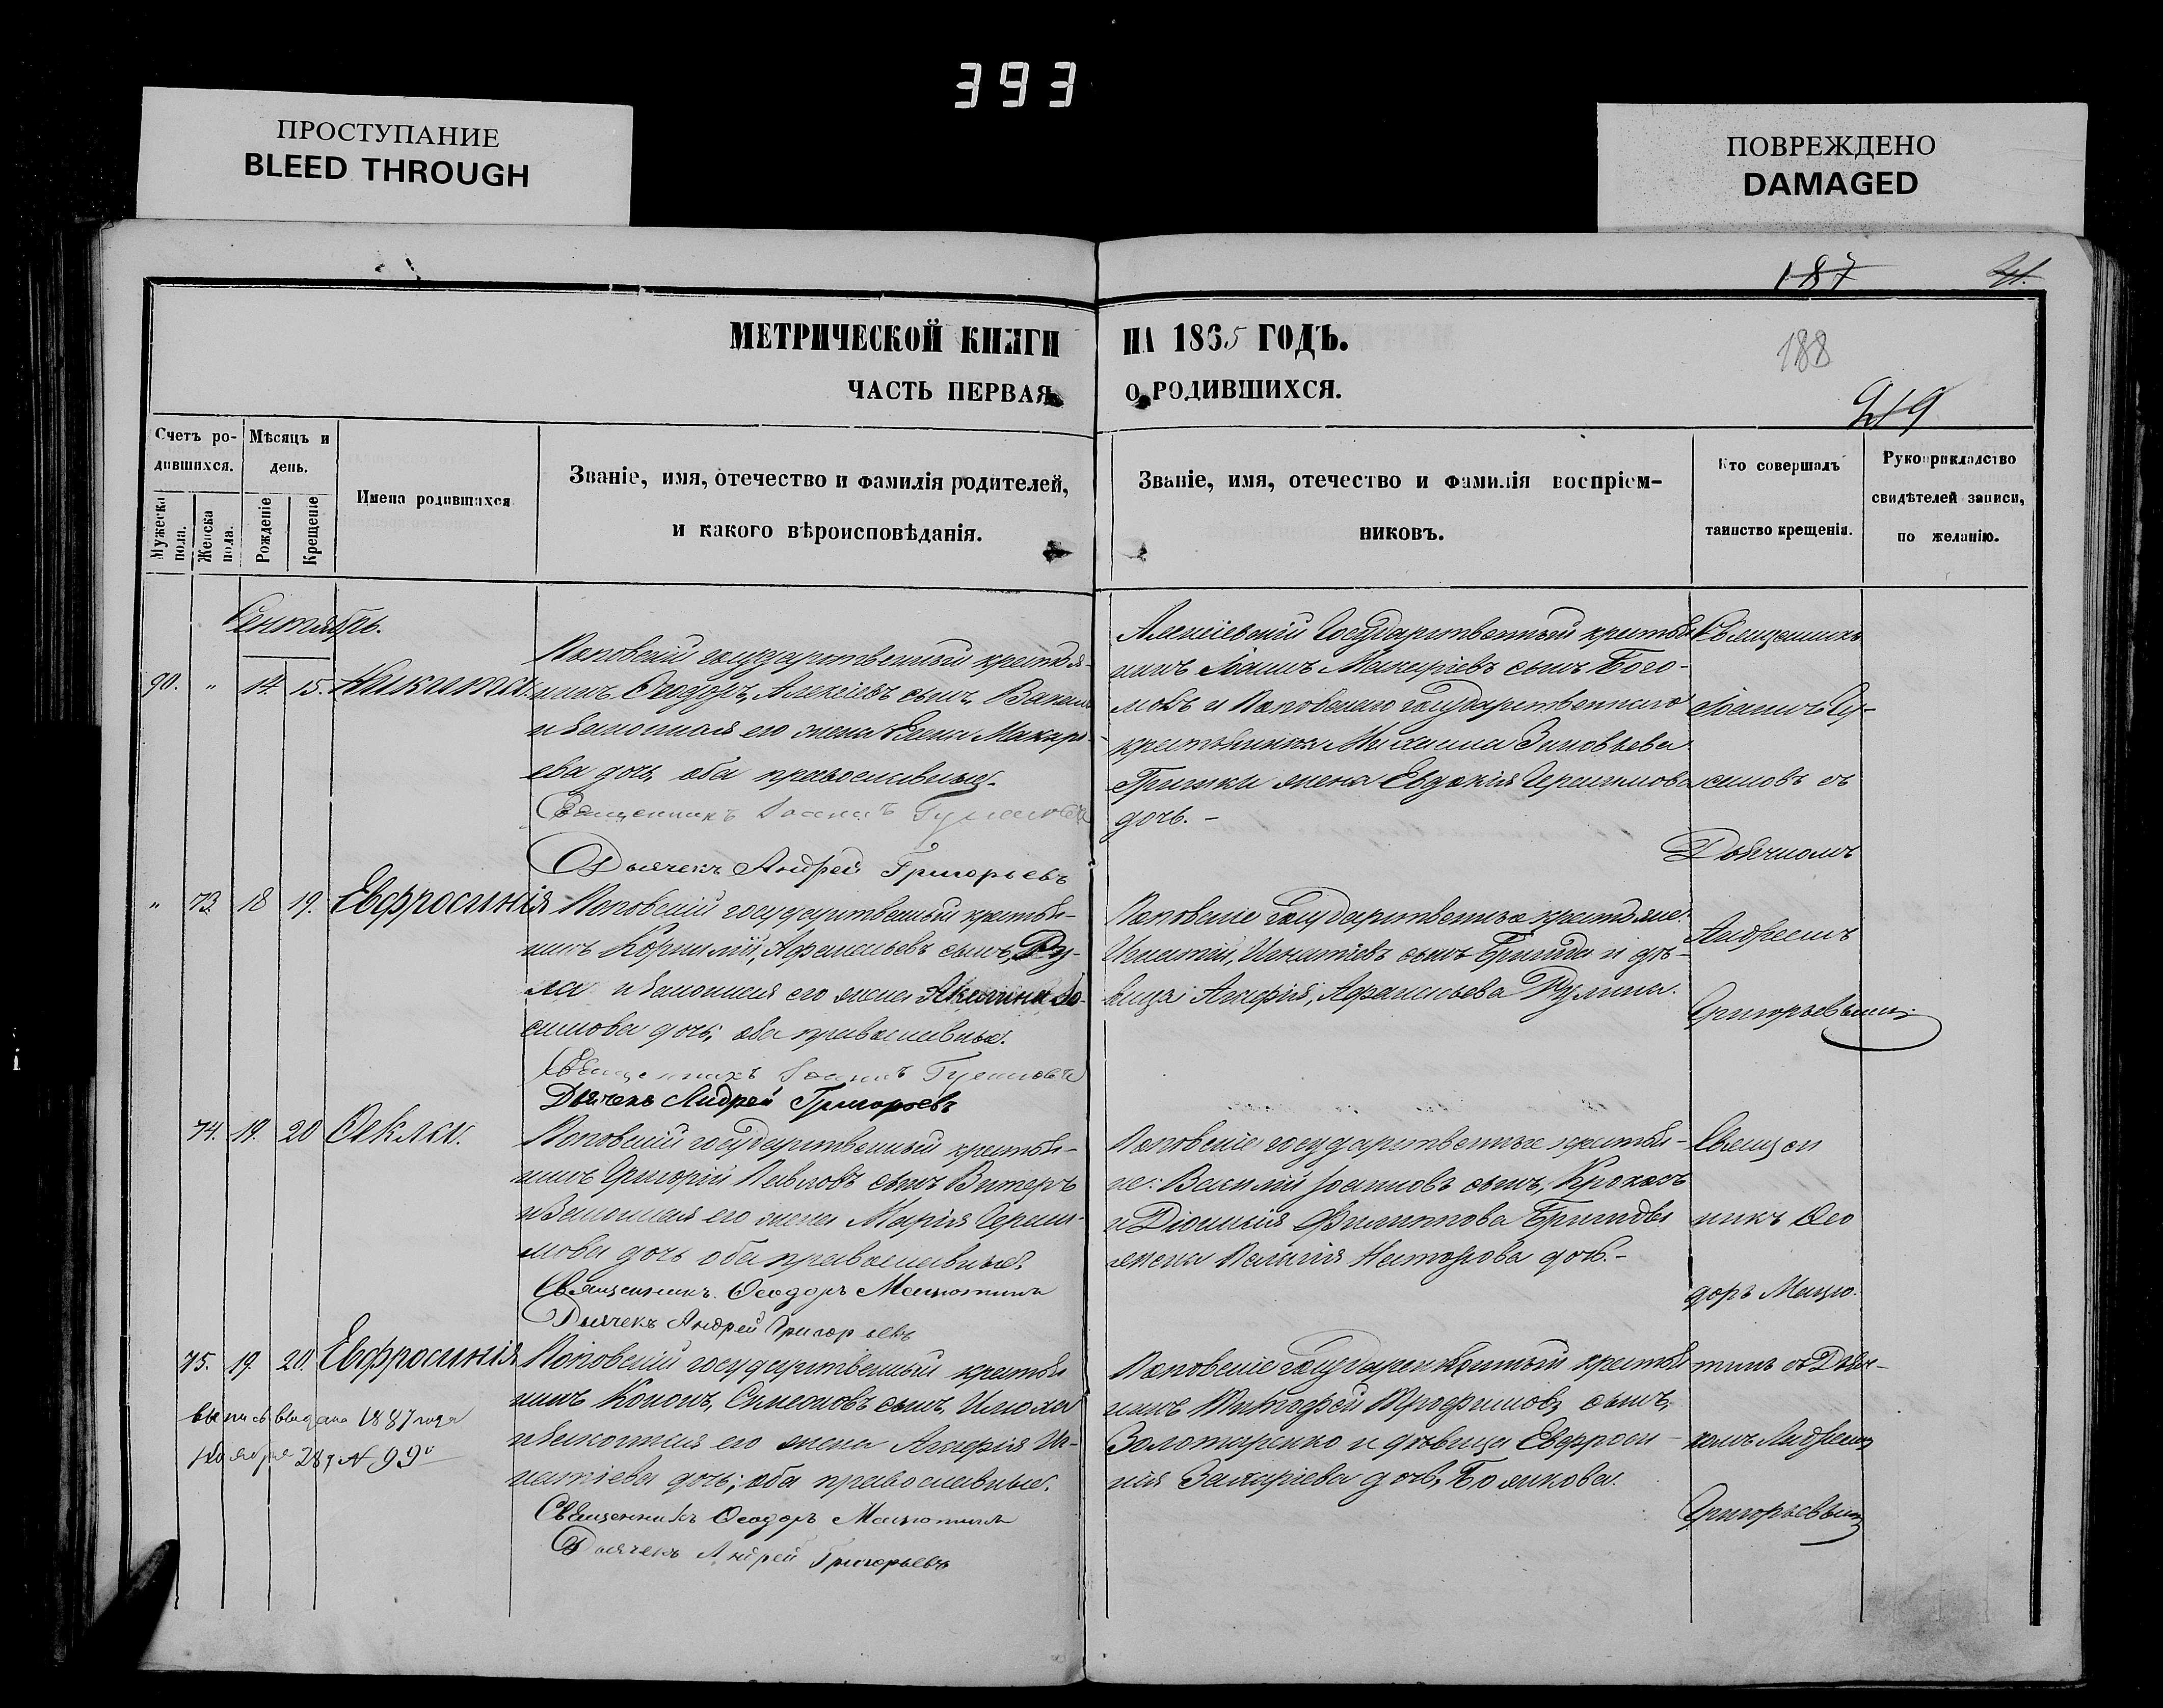 393
ПРОСТУПАНИЕ
BLEED THROUGH
ПОВРЕЖДЕНО
DAMAGED
187
188
МЕТРИЧЕСКОЙ КНИГИ НА 1865 ГОДЪ.
ЧАСТЬ ПЕРВАЯ О РОДИВШИХСЯ.
219
Счетъ ро-
дившихся.
Мужеска
пола.
Женска
пола.
Мѣсяцъ и
день.
Рожденіе
Крещеніе
Имена родившихся
Званіе, имя, отечество и фамилія родителей,
и какого вѣроисповѣданія.
Званіе, имя, отечество и фамилія воспріем-
никовъ.
Кто совершалъ
таинство крещенія.
Рукоприкладство
свидѣтелей записи,
по желанію.
Сентябрь.
90. " 14. 15. Никита.
Поповскій государственный крестья-
нинъ Ѳеодоръ, Алексіевъ сынъ,
и законная его жена Елена Макарі-
ева дочь, оба православные.
Священникъ Іоаннъ
Дьячекъ Андрей Григорьевъ
Алексіевскій Государственный крестья
нинъ Іоаннъ Макаріевъ сынъ
и Поповскаго государственного
крестьянина Михаила Зиновьева
жена Евдокія Герасимова
дочь.-
Священникъ
Іоаннъ
съ
Дьячкомъ
Андреемъ
Григорьевымъ
" 73. 18 19. Евфросинія
Поповскій государственный крестья-
нинъ Корнилій, Афанасьевъ сынъ, Ру-
ла и законная его жена Акилина
симова дочь; оба православные.
Священникъ Іоаннъ
Дьячекъ Андрей Григорьевъ
Поповскіе Государственные крестьяне:
Игнатій, Игнатіевъ сынъ и дѣ-
вица Агафія, Афанасьева
74. 19. 20 Ѳекла.
Поповскій государственный крестья-
нинъ Григорій Павловъ сынъ Витеръ
и законная его жена Марія Гераси-
мова дочь оба православные.
Священникъ Ѳеодоръ Мацютинъ
Дьячекъ Андрей Григорьевъ
Поповскіе государственные крестья-
не: Василій Іоанновъ сынъ,
и Діонисія
жена Пелагія Несторова дочь.-
Священ
никъ Ѳео
доръ Мацю-
тинъ съ Дьяч-
комъ Андреемъ
Григорьевымъ
75. 19. 20. Евфросинія
выпись выдана 1887 года
Ноября 28 № 99
Поповскій государственный крестья
нинъ Кононъ, Симеоновъ сынъ,
и законная его жена Агафія Иг-
натіева дочь; оба православные.
Священникъ Ѳеодоръ Мацютинъ
Дьячекъ Андрей Григорьевъ
Поповскіе Государственный крестья
нинъ Трофимовъ сынъ,
Золотаренко и дѣвица Евфроси-
нія Захаріева дочь,